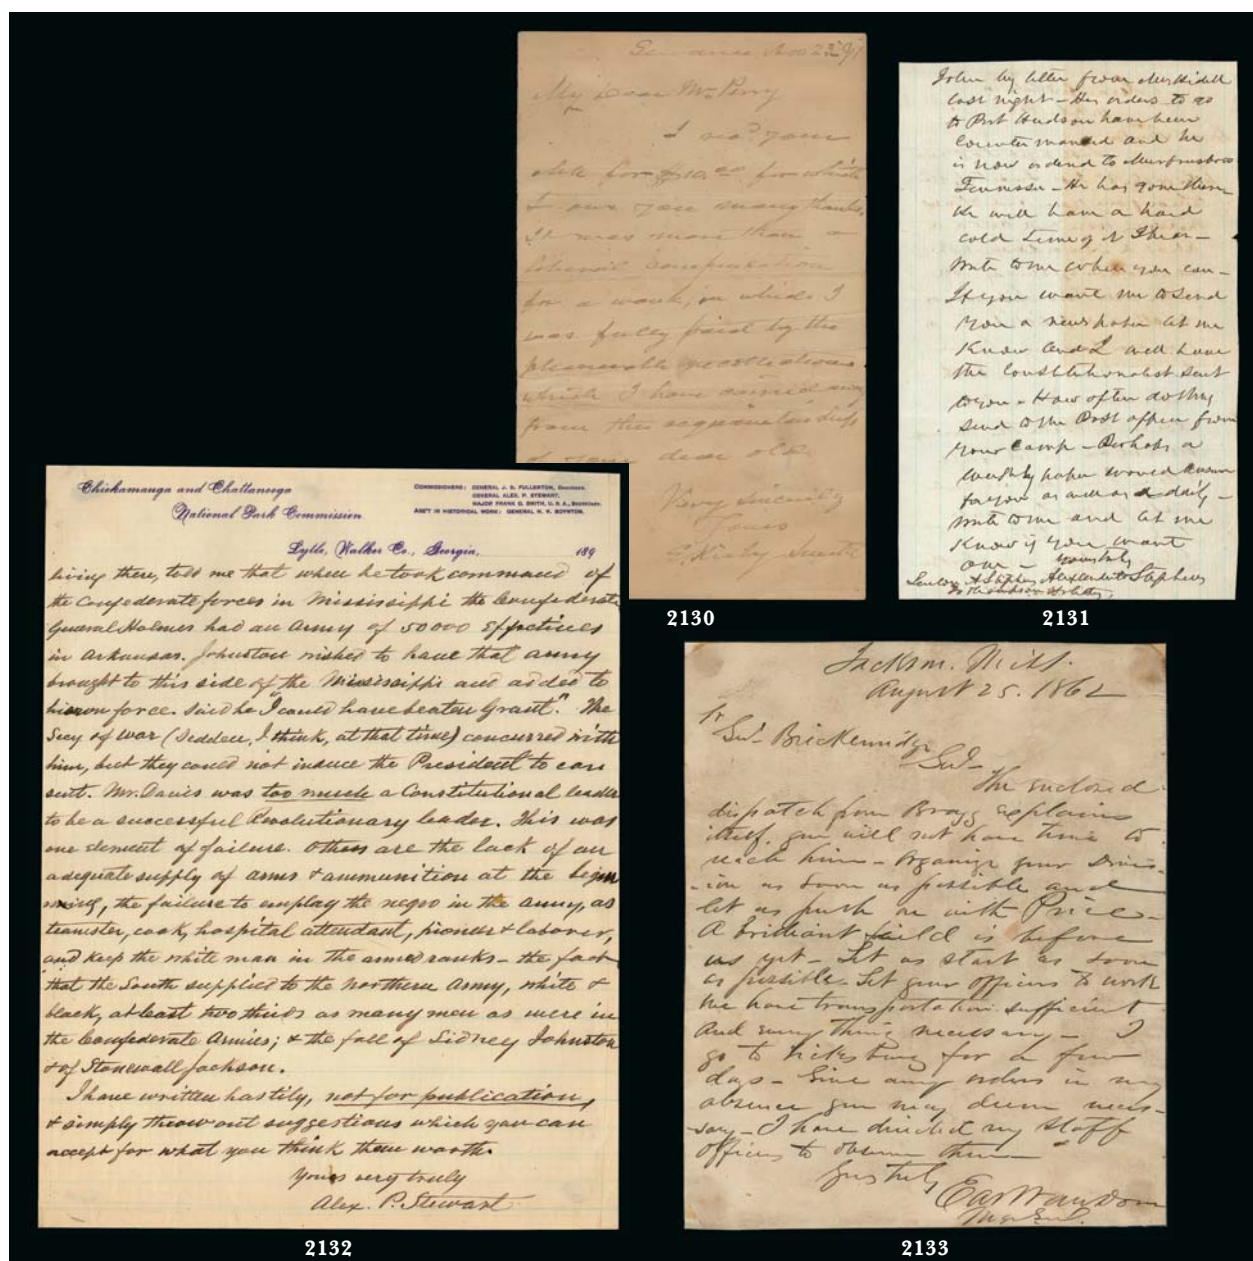 Sewanee Nov 23rd 91
My Dear Mr. Perry
I rec'd your
chk for $10.00 for which
I owe you many thanks.
It was more than a
liberal compensation
for a work, in which I
was fully paid by the
pleasurable recollections
which I have carried away
from the acquaintanceship
of your dear old
Very Sincerely
Yours
E. Kirby Smith
2130
John by letter from
last night – His orders to go
to Port Hudson have been
countermanded and he
is now ordered to Murfreesboro
Tennessee – He has gone there
He will have a hard
cold time of it I fear –
write to me when you can –
If you want me to send
you a newspaper let me
know and I will have
the Constitutionalist sent
to you – How often do they
send to the Post office from
your camp – Perhaps a
weekly paper would answer
for you as well as a daily –
write to me and let me
know if you want
one – yours truly
Linton A Stephens Alexander H Stephens
2131
Chickamauga and Chattanooga
National Park Commission
COMMISSIONERS: GENERAL J. S. FULLERTON, CHAIRMAN.
GENERAL ALEX. P. STEWART,
MAJOR FRANK G. SMITH, U. S. A., SECRETARY.
ASS'T IN HISTORICAL WORK: GENERAL H. V. BOYNTON.
Lytle, Walker Co., Georgia, 189
living there, told me that when he took command of
the Confederate forces in Mississippi the Confederate
General Holmes had an army of 50000 effectives
in Arkansas. Johnston wished to have that army
brought to this side of the Mississippi and added to
his own force. Said he "I could have beaten Grant". The
Secy of war (Seddon, I think, at that time) concurred with
him, but they could not induce the President to con
sent. Mr. Davis was too much a Constitutional leader
to be a successful Revolutionary leader. This was
one element of failure. Others are the lack of an
adequate supply of arms & ammunition at the begin
ning, the failure to employ the negro in the army, as
teamster, cook, hospital attendant, pioneer & laborer,
and keep the white man in the armed ranks – the fact
that the South supplied to the northern army, white &
black, at least two thirds as many men as were in
the Confederate Armies; & the fall of Sidney Johnston
& of Stonewall Jackson.
I have written hastily, not for publication,
& simply throw out suggestions which you can
accept for what you think them worth.
Yours very truly
Alex. P. Stewart
2132
Jackson. Miss.
August 25. 1862
To
Genl Brickenridge
Genl–
The enclosed
dispatch from Bragg explains
itself. you will not have time to
reach him – Organize your Divis-
-ion as soon as possible and
let us push on with Price –
A brilliant field is before
us yet – Let us start as soon
as possible. Set your officers to work
We have transportation sufficient
And every thing necessary – I
go to Vicksburg for a few
days – Give any orders in my
absence you may deem neces-
-sary – I have directed my staff
officers to observe them –
Yrs truly
Earl Van Dorn
Maj Genl.
2133